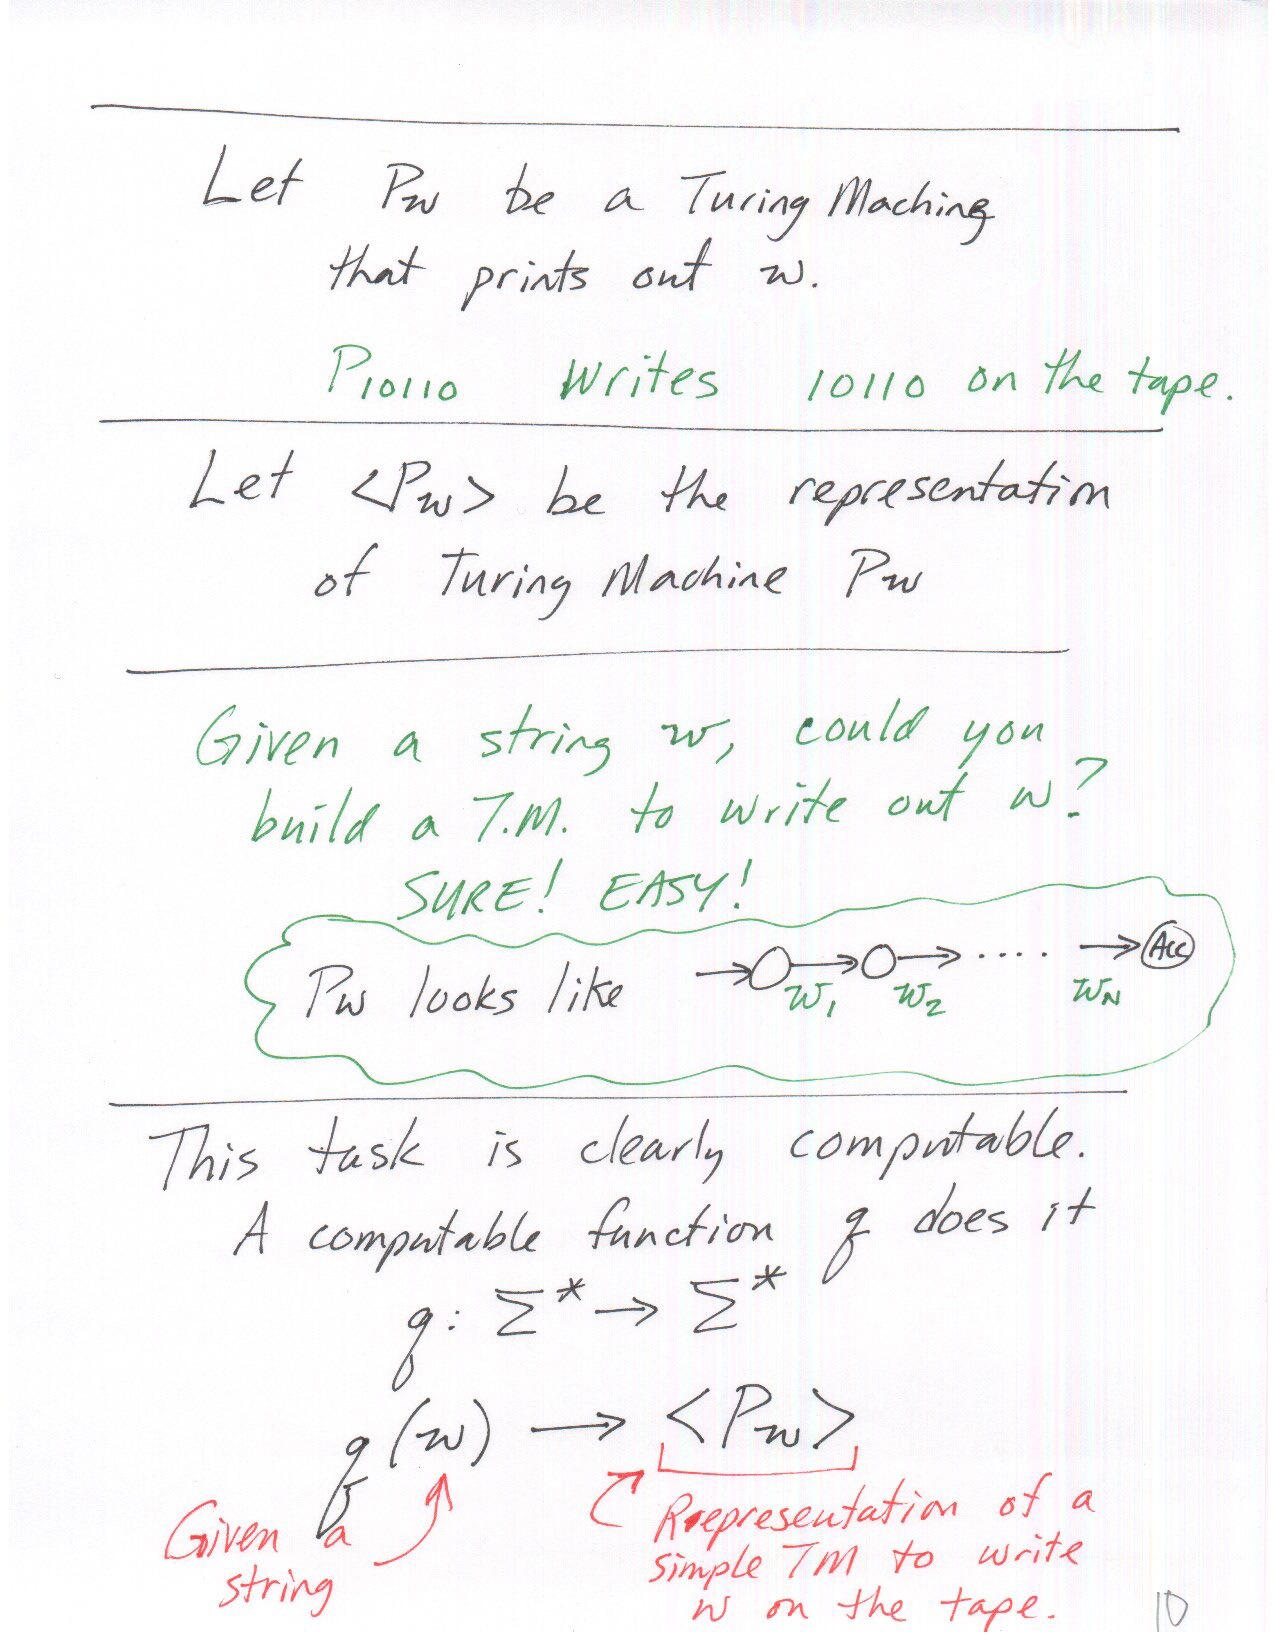 Let Pw be a Turing Machine
that prints out w.
P10110 Writes 10110 on the tape.
Let <Pw> be the representation
of Turing Machine Pw
Given a string w, could you
build a T.M. to write out w?
SURE! EASY!
Pw looks like → ○ → ○ → .... → Acc
w1 w2 wN
This task is clearly computable.
A computable function q does it
q: Σ* → Σ*
q(w) → <Pw>
Given a string
Representation of a
simple TM to write
w on the tape.
10